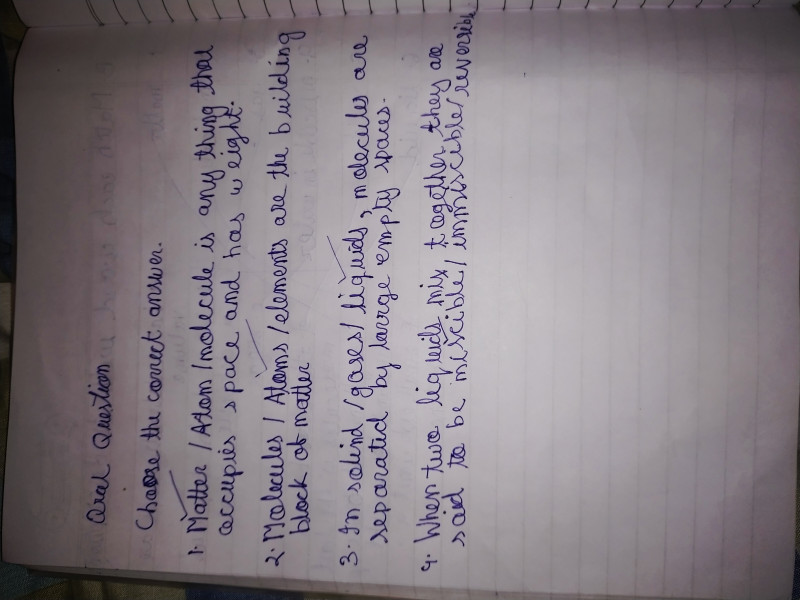 Oral Question
Choose the correct answer.
1. Matter / Atom / molecule is any thing that
occupies space and has weight.
2. Molecules / Atoms / elements are the building
block of matter
3. In solind / gases / liquids, molecules are
separated by larrge empty spaces.
4. When two liquids mix together they are
said to be miscible / immiscible / reversible